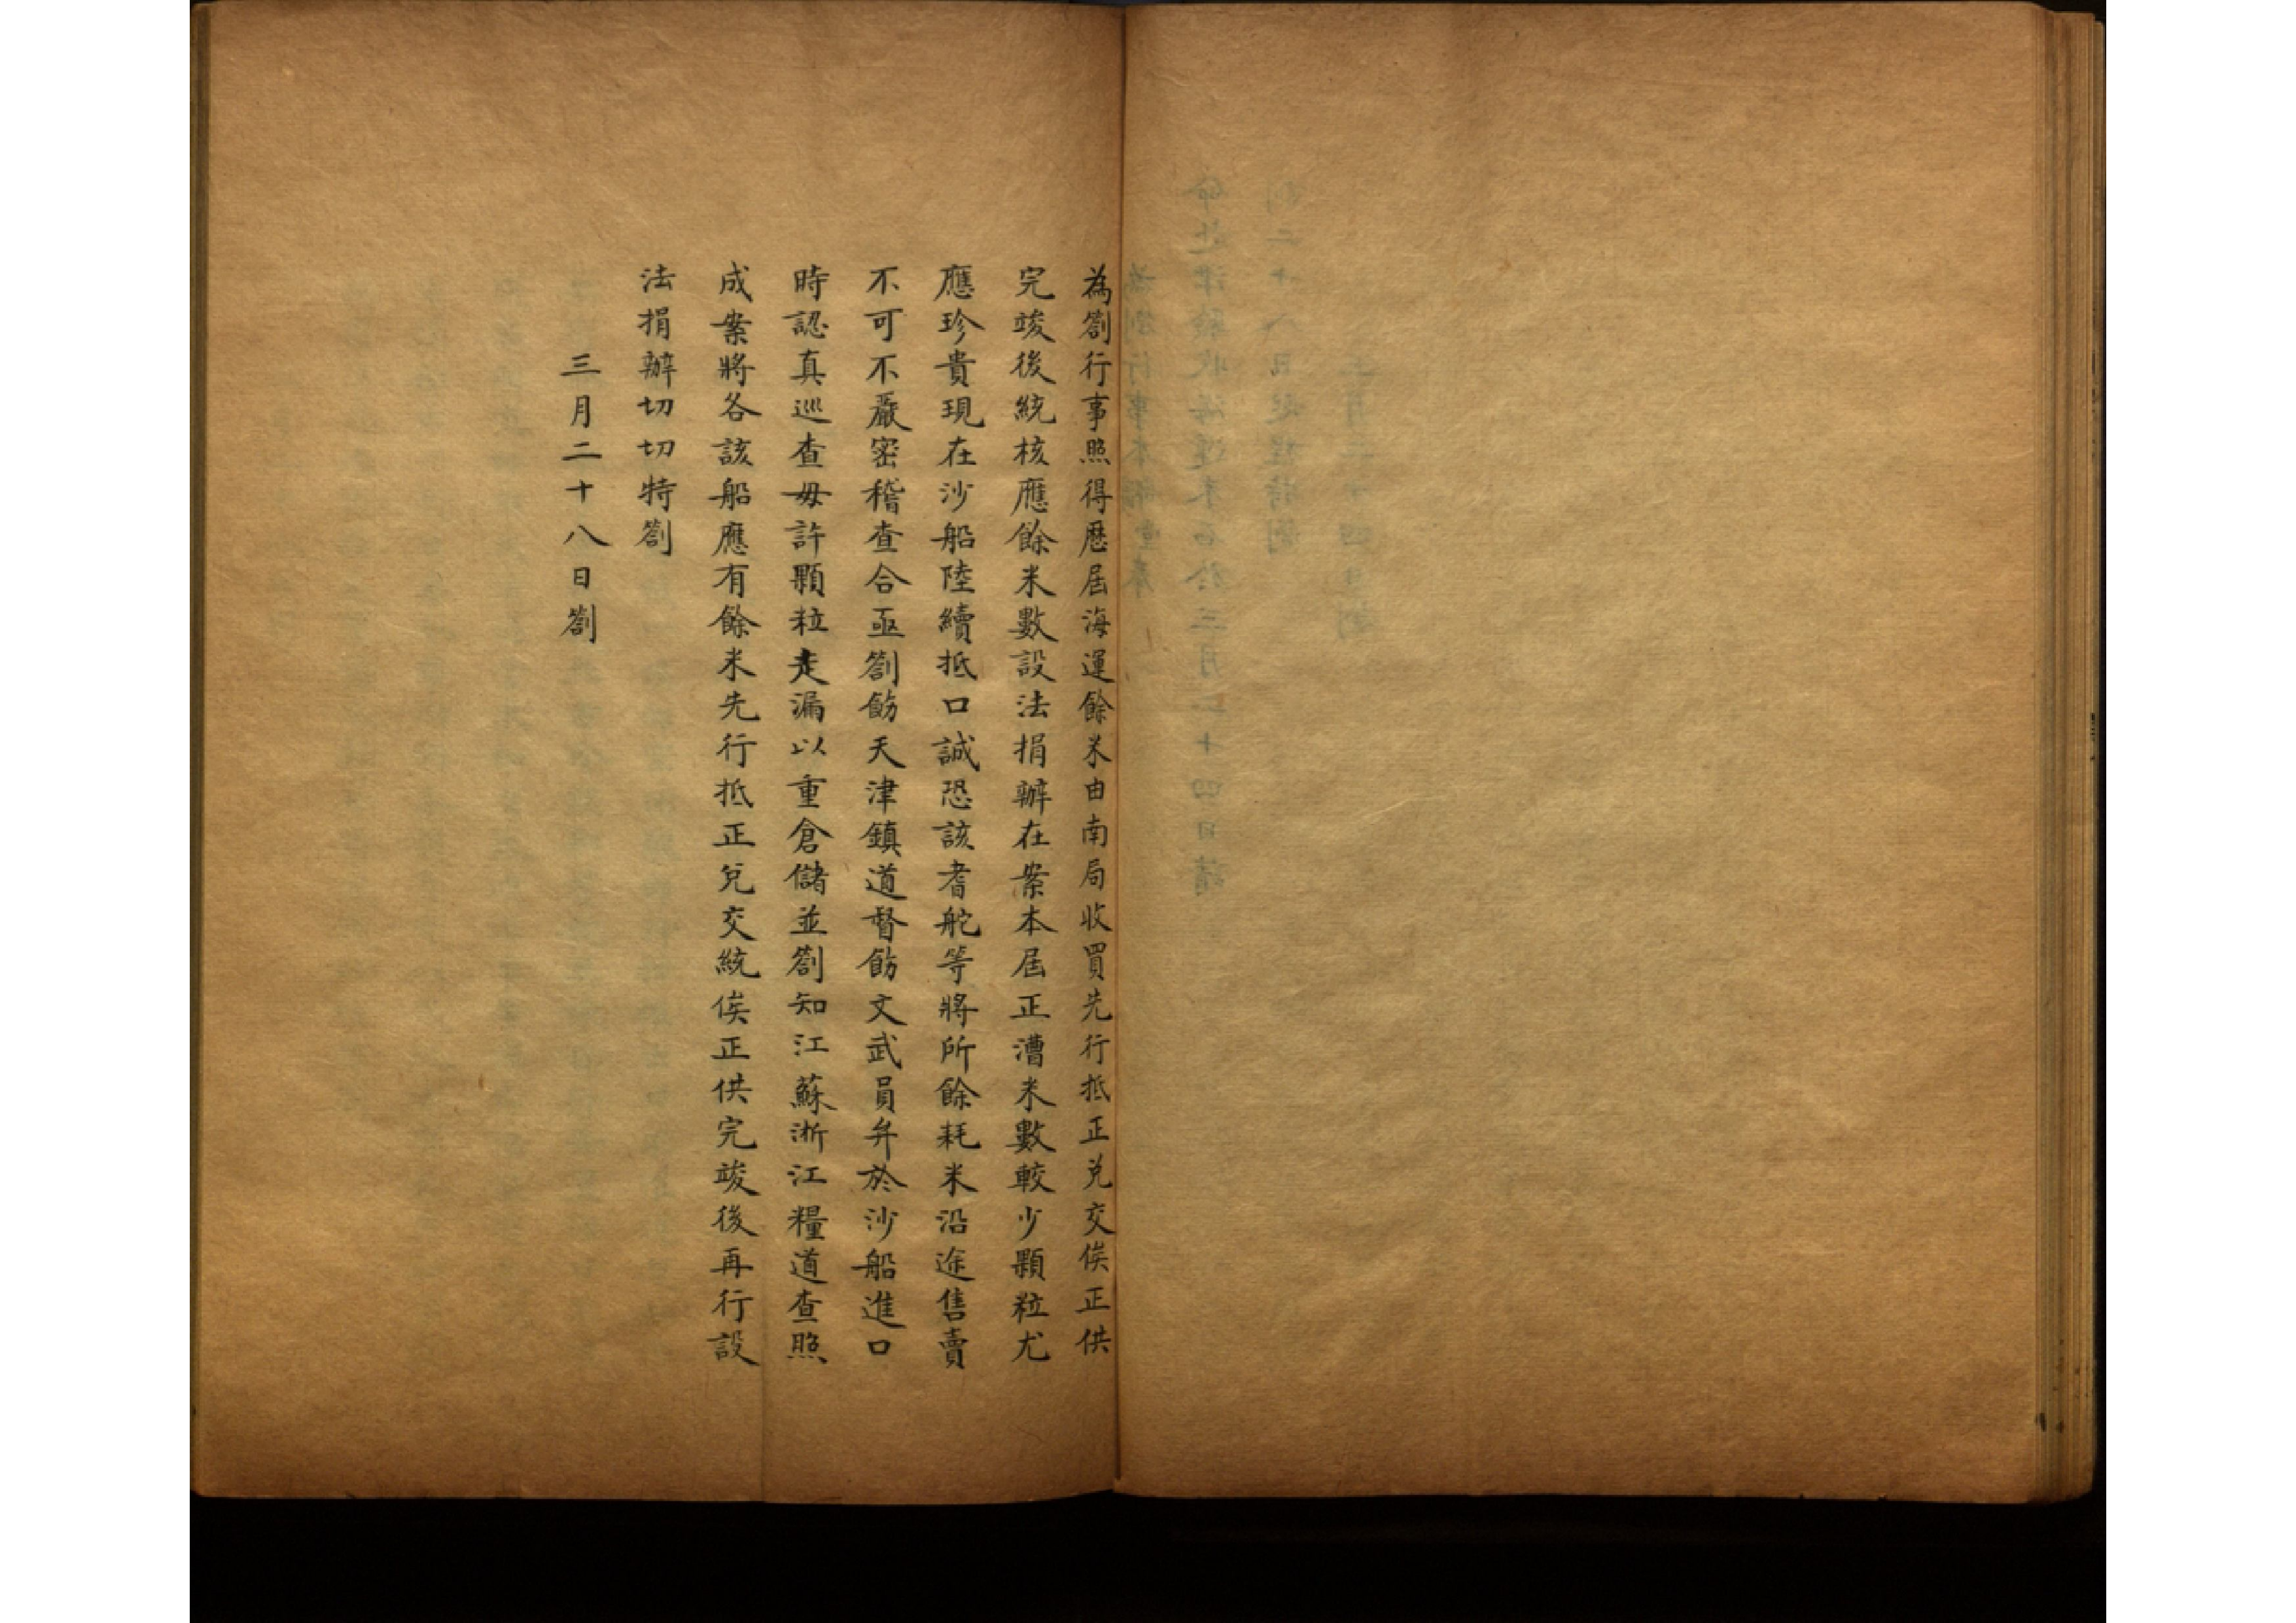 為劄行事照得歷屆海運餘米由南局收買先行抵正兌交俟正供
完竣後統核應餘米數設法捐辦在案本屆正漕米數較少顆粒尤
應珍貴現在沙船陸續抵口誠恐該耆舵等將所餘耗米沿途售賣
不可不嚴密稽查合亟劄飭天津鎮道督飭文武員弁於沙船進口
時認真巡查毋許顆粒走漏以重倉儲並劄知江蘇浙江糧道查照
成案將各該船應有餘米先行抵正兌交統俟正供完竣後再行設
法捐辦切切特劄
三月二十八日劄